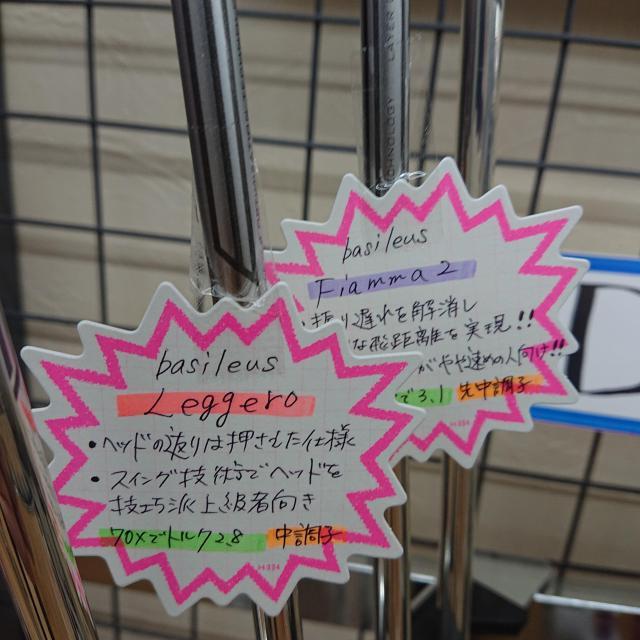 basileus
Fiamma2
振り遅れを解消し
な飛距離を実現!!
がやや速めの人向け!!
で3.1 先中調子
basileus
Leggero
・ヘッドの返りは押さえた仕様
・スイング技術でヘッドを
技巧派上級者向き
70Xでトルク2.8 中調子
LAYER
D